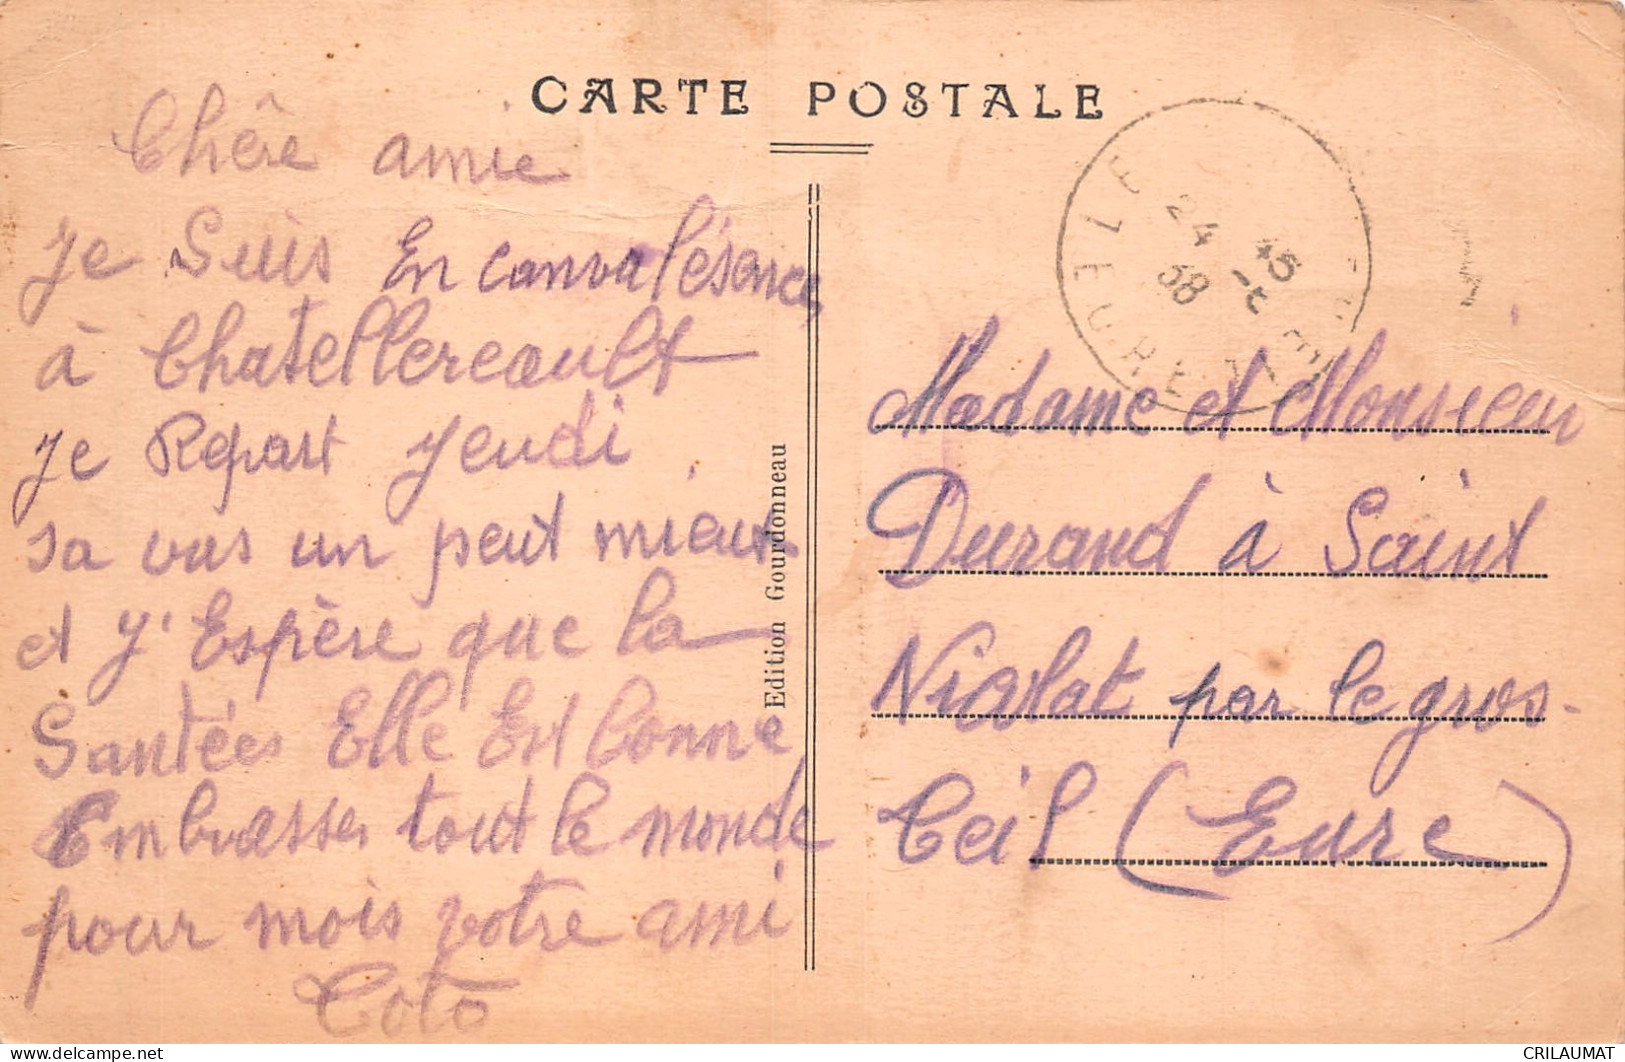 CARTE POSTALE
Chêre amie
Je Suis En canvalésence,
à Chatellereault
Je Repart Jeudi
sa vas un peut mieux
et J'Espère que la
Santées Elle Est bonne
Embrasser tout le monde
pour mois votre ami
Coto
Edition Gourdonneau
24 15
38
EURE
Madame et Monsieur
Durand à Saint
Nicolat par le gros-
Ceil (Eure)
CRILAUMAT